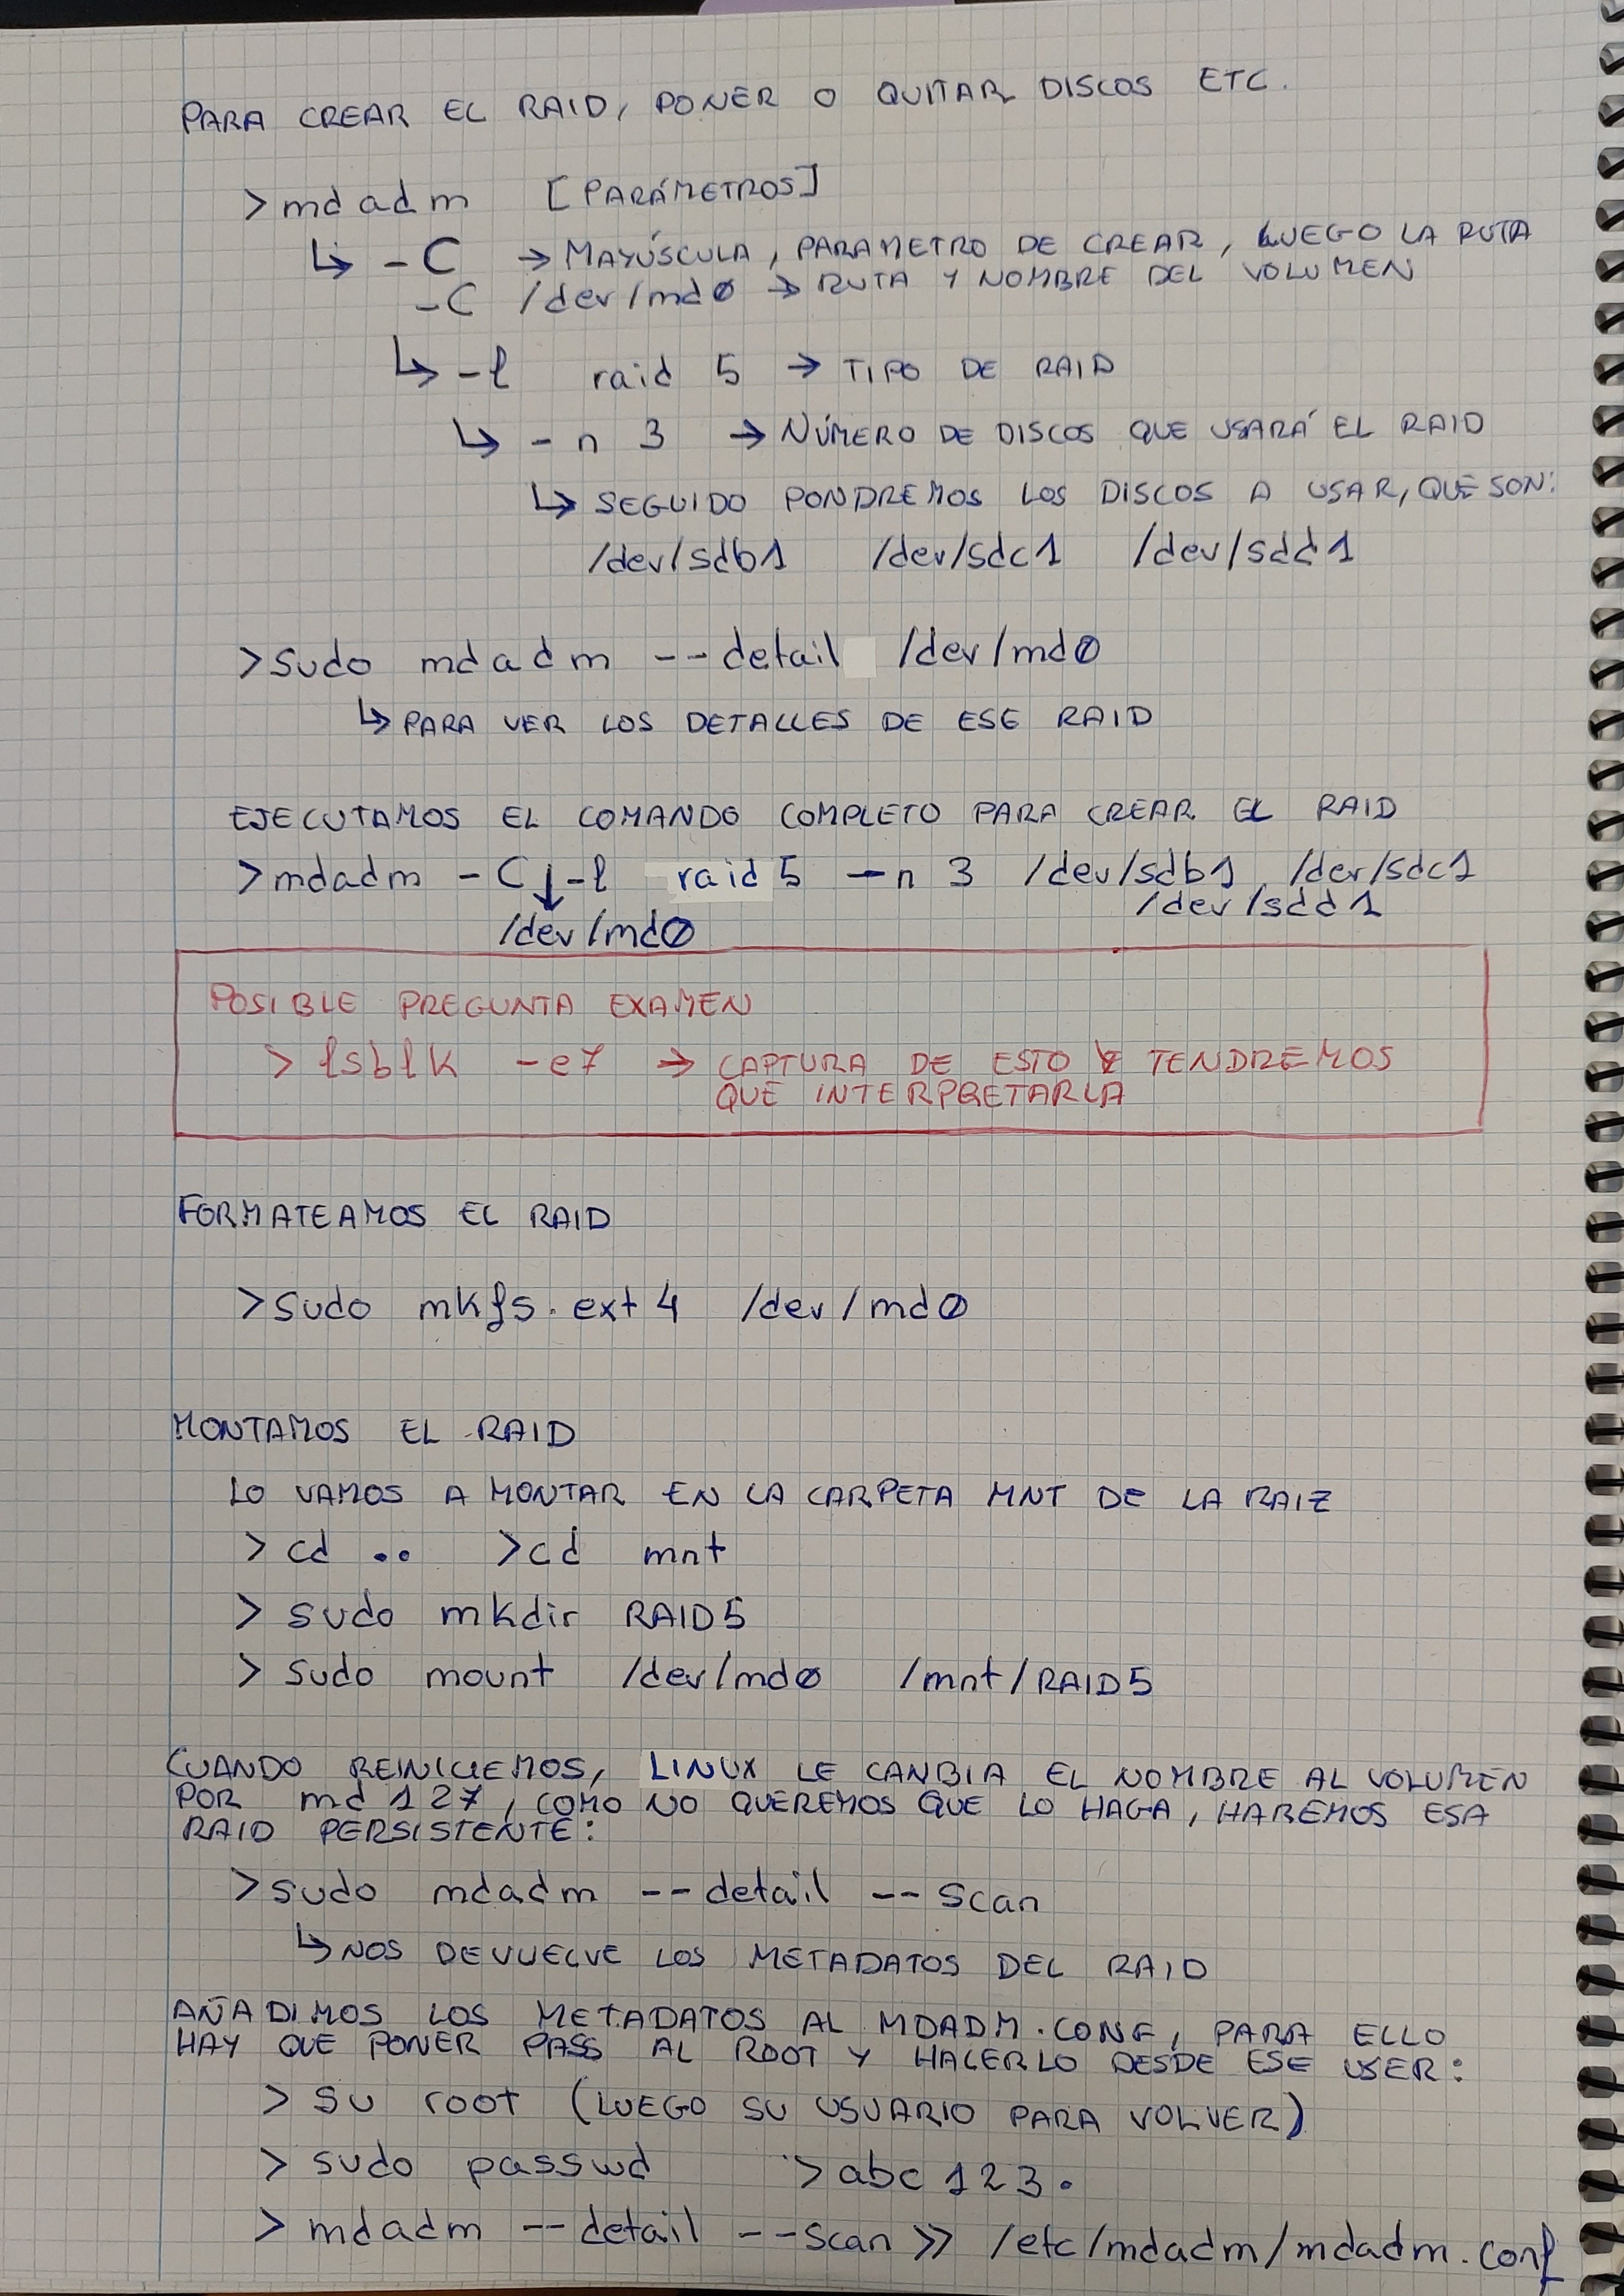 PARA CREAR EL RAID, PONER O QUITAR DISCOS ETC.
>mdadm [PARÁMETROS]
↳ -C → MAYÚSCULA, PARAMETRO DE CREAR, LUEGO LA RUTA
-C /dev/md0 → RUTA Y NOMBRE DEL VOLUMEN
↳ -l raid 5 → TIPO DE RAID
↳ -n 3 → NÚMERO DE DISCOS QUE USARÁ EL RAID
↳ SEGUIDO PONDREMOS LOS DISCOS A USAR, QUE SON:
/dev/sdb1 /dev/sdc1 /dev/sdd1
>sudo mdadm --detail /dev/md0
↳ PARA VER LOS DETALLES DE ESE RAID
EJECUTAMOS EL COMANDO COMPLETO PARA CREAR EL RAID
>mdadm -C ↓ -l raid 5 -n 3 /dev/sdb1 /dev/sdc1
/dev/sdd1
/dev/md0
POSIBLE PREGUNTA EXAMEN
> lsblk -e7 → CAPTURA DE ESTO Y TENDREMOS
QUE INTERPRETARLA
FORMATEAMOS EL RAID
>sudo mkfs.ext4 /dev/md0
MONTAMOS EL RAID
LO VAMOS A MONTAR EN LA CARPETA MNT DE LA RAIZ
> cd .. >cd mnt
> sudo mkdir RAID5
> sudo mount /dev/md0 /mnt/RAID5
CUANDO REINICIEMOS, LINUX LE CANBIA EL NOMBRE AL VOLUMEN
POR md127, COMO NO QUEREMOS QUE LO HAGA, HAREMOS ESA
RAID PERSISTENTE:
>sudo mdadm --detail --scan
↳ NOS DEVUELVE LOS METADATOS DEL RAID
AÑADIMOS LOS METADATOS AL MDADM.CONF, PARA ELLO
HAY QUE PONER PASS AL ROOT Y HACERLO DESDE ESE USER:
> su root (LUEGO SU USUARIO PARA VOLVER)
> sudo passwd >abc123.
> mdadm --detail --scan >> /etc/mdadm/mdadm.conf